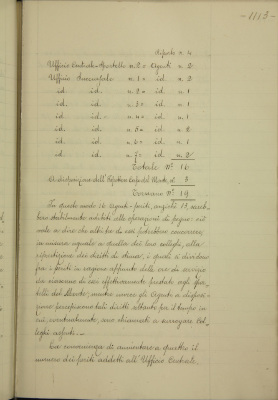 -1113-
Riporto n. 4
Ufficio Centrale Sportello n. 2 = Agenti n. 2
Ufficio Succursale n. 1 = id. n. 2
id. id. n. 2 = id. n. 1
id. id. n. 3 = id. n. 1
id. id. n. 4 = id. n. 1
id. id. n. 5 = id. n. 2
id. id. n. 6 = id. n. 1
id. id. n. 7 = id. n. 2
Totale N° 16
A disposizione dell' Capo del n. 3
Tornano N° 19
In questo modo 16 Agenti-periti, anzichè 13, sareb-
bero stabilmente adibiti alle operazioni di pegno: nel
male si dice che altri tre di essi potrebbero concorrere,
in misura eguale a quella dei loro colleghi, alla
ripartizione dei diritti di stima, i quali si dividono
fra i periti in ragione appunto delle ore di servizio
da ciascuno di essi effettivamente prestato negli spor-
telli del Monte, mentre invece gli Agenti a disposi-
zione percepiscono tali diritti soltanto per il tempo in
cui, eventualmente, sono chiamati a surrogare Col-
leghi assenti. -
La convenienza di aumentare a quattro il
numero dei periti addetti all' Ufficio Centrale